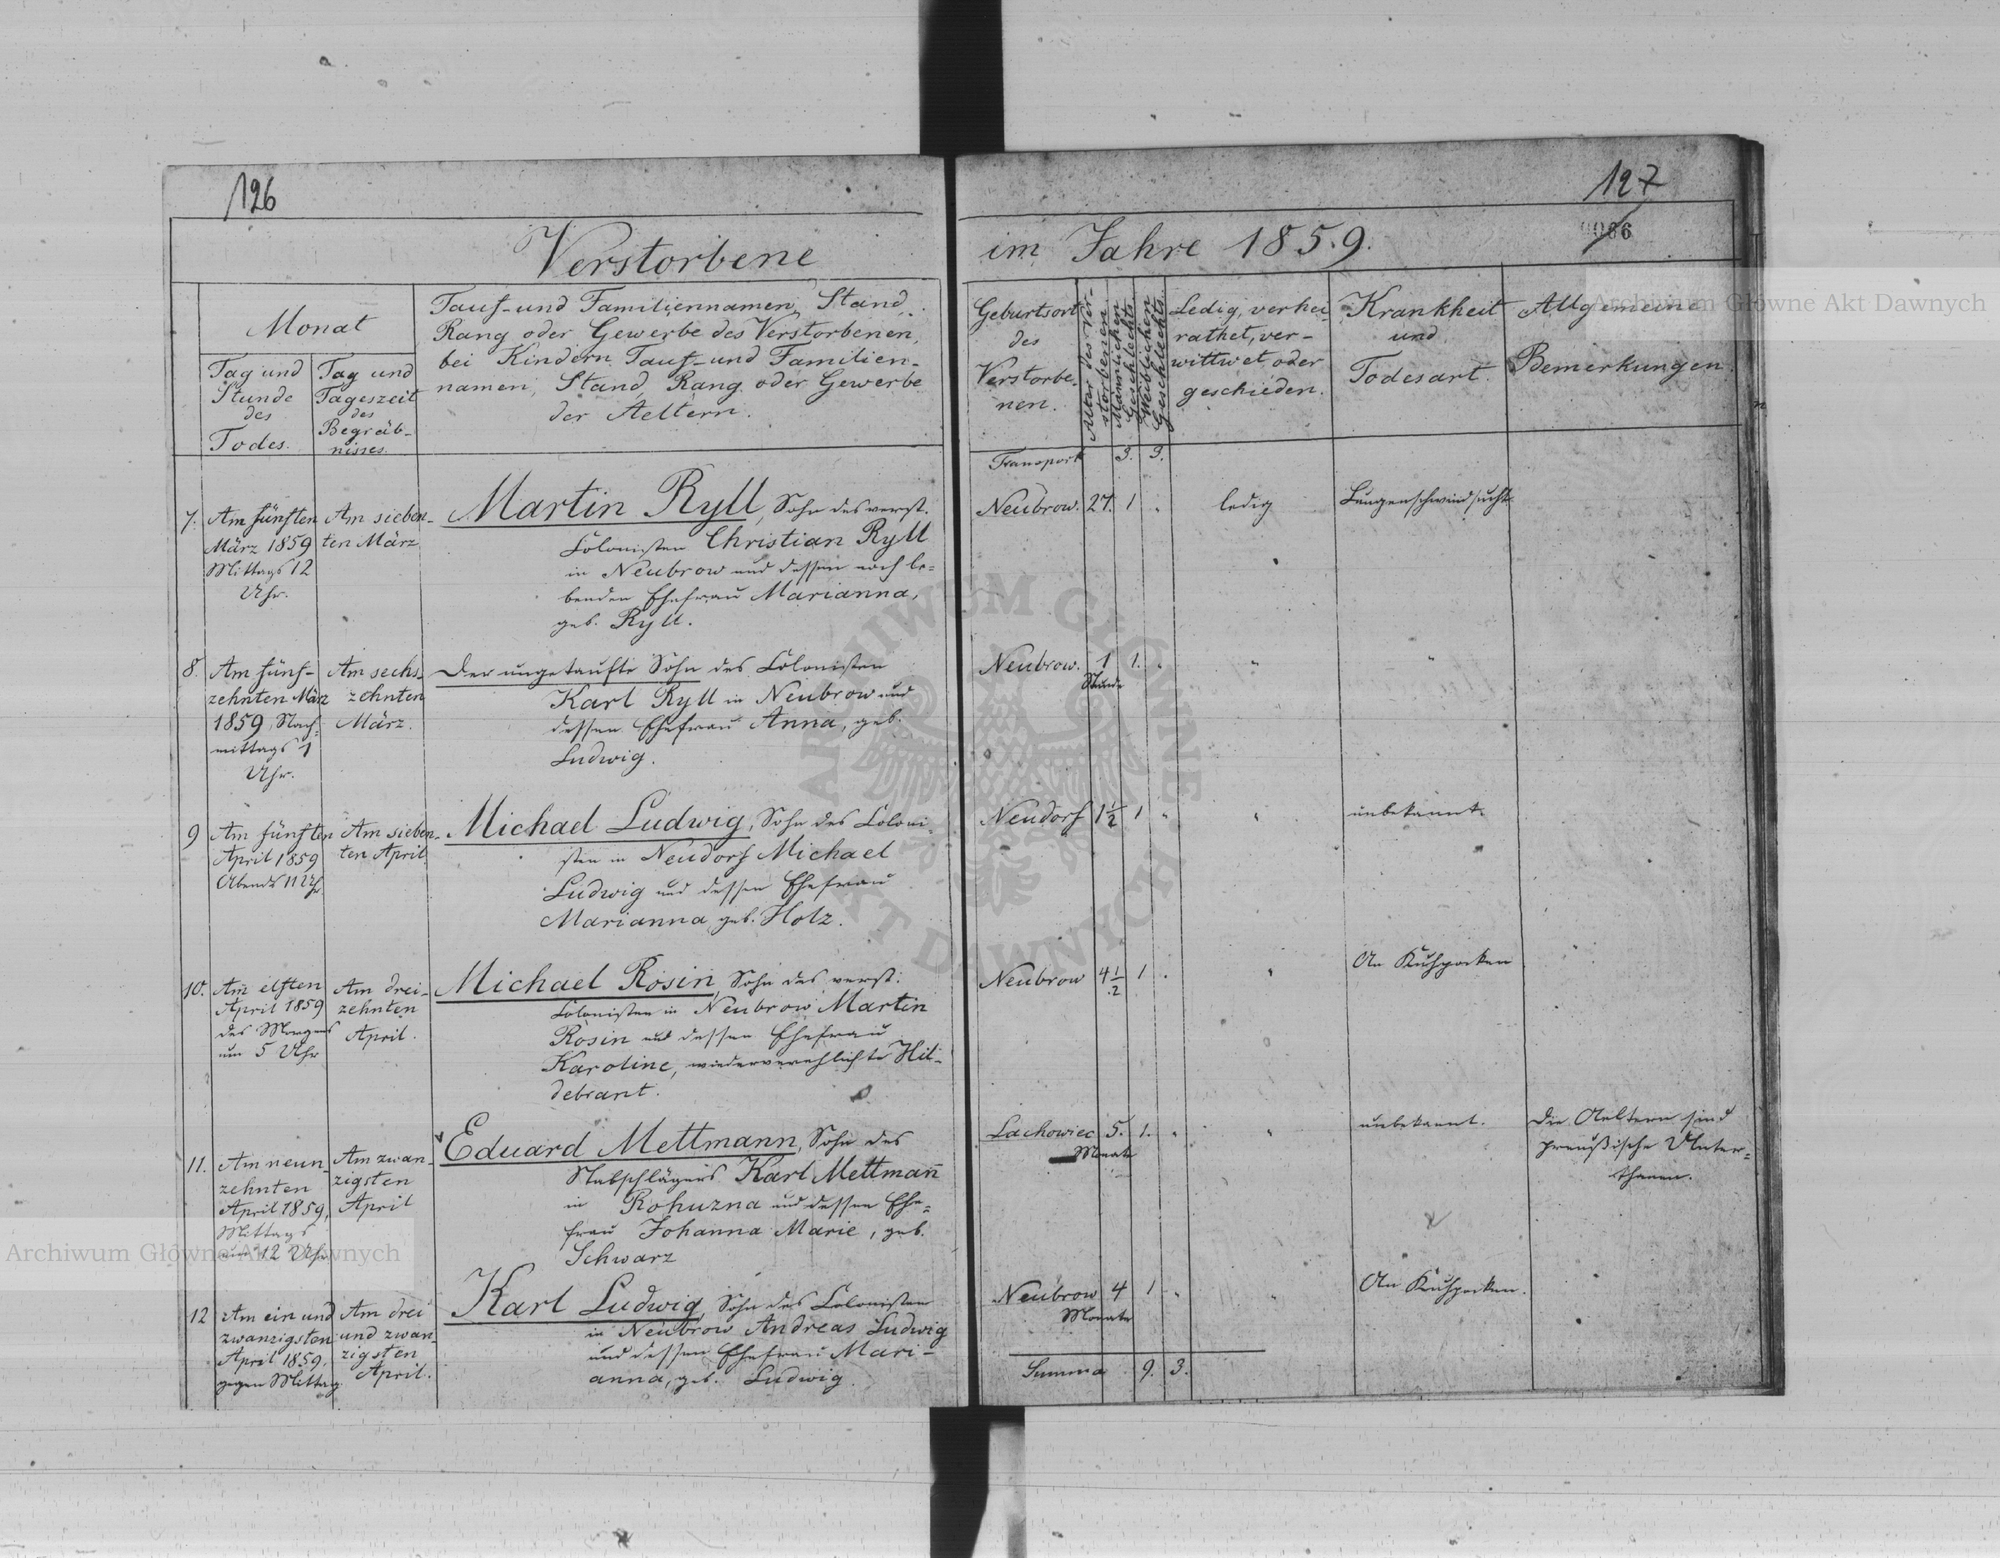 126
127
0086
Verstorbene
im Jahre 1859.
Monat
Tag und
Stunde
des
Todes.
Tag und
Tageszeit
des
Begräb-
nisses.
Tauf- und Familiennamen, Stand,
Rang oder Gewerbe des Verstorbenen,
bei Kindern Tauf- und Familien-
namen, Stand, Rang oder Gewerbe
der Aeltern.
Geburtsort
des
Verstorbe-
nen.
Alter des Ver-
storbenen
Männlichen
Geschlechts.
Weiblichen
Geschlechts.
Ledig, verhei-
rathet, ver-
wittwet oder
geschieden.
Krankheit
und
Todesart.
Allgemeine
Bemerkungen.
Transport 3. 3.
7. Am fünften
März 1859
Mittags 12
Uhr.
Am sieben-
ten März
Martin Ryll, Sohn des verst.
Colonisten Christian Ryll
in Neubrow und dessen noch le-
benden Ehefrau Marianna,
geb. Ryll.
Neubrow. 27. 1 „ ledig Lungenschwindsucht.
8. Am fünf-
zehnten März
1859, Nach-
mittags 1
Uhr.
Am sechs-
zehnten
März.
Der ungetaufte Sohn des Colonisten
Karl Ryll in Neubrow und
dessen Ehefrau Anna, geb.
Ludwig.
Neubrow. 1 1. „ „ „
Stunde
9 Am fünften
April 1859
Abends 11 Uhr
Am sieben-
ten April
Michael Ludwig, Sohn des Coloni-
sten in Neudorf Michael
Ludwig und dessen Ehefrau
Marianna geb. Holz.
Neudorf 1½ 1 „ „ unbekannt.
10. Am elften
April 1859
des Morgens
um 5 Uhr
Am drei-
zehnten
April.
Michael Rosin, Sohn des verst.
Colonisten in Neubrow Martin
Rosin und dessen Ehefrau
Karoline, wiederverehlichte Hil-
debrant.
Neubrow 4½ 1 „ „ An Kuhpocken
11. Am neun-
zehnten
April 1859,
Mittags
um 12 Uhr
Am zwan-
zigsten
April
Eduard Mettmann, Sohn des
Stabschlägers Karl Mettmañ
in Rohuzna und dessen Ehe-
frau Johanna Marie, geb.
Schwarz
Lachowiec 5. 1. „ „ unbekannt.
Monate
Die Aeltern sind
preußische Unter-
thanen.
12 Am ein und
zwanzigsten
April 1859,
gegen Mittag
Am drei
und zwan-
zigsten
April.
Karl Ludwig, Sohn des Colonisten
in Neubrow Andreas Ludwig
und dessen Ehefrau Mari-
anna, geb. Ludwig.
Neubrow 4 1 „ „ An Kuhpocken.
Monate
Summa 9. 3.
Archiwum Główne Akt Dawnych
Archiwum Główne Akt Dawnych
ARCHIWUM GŁÓWNE AKT DAWNYCH